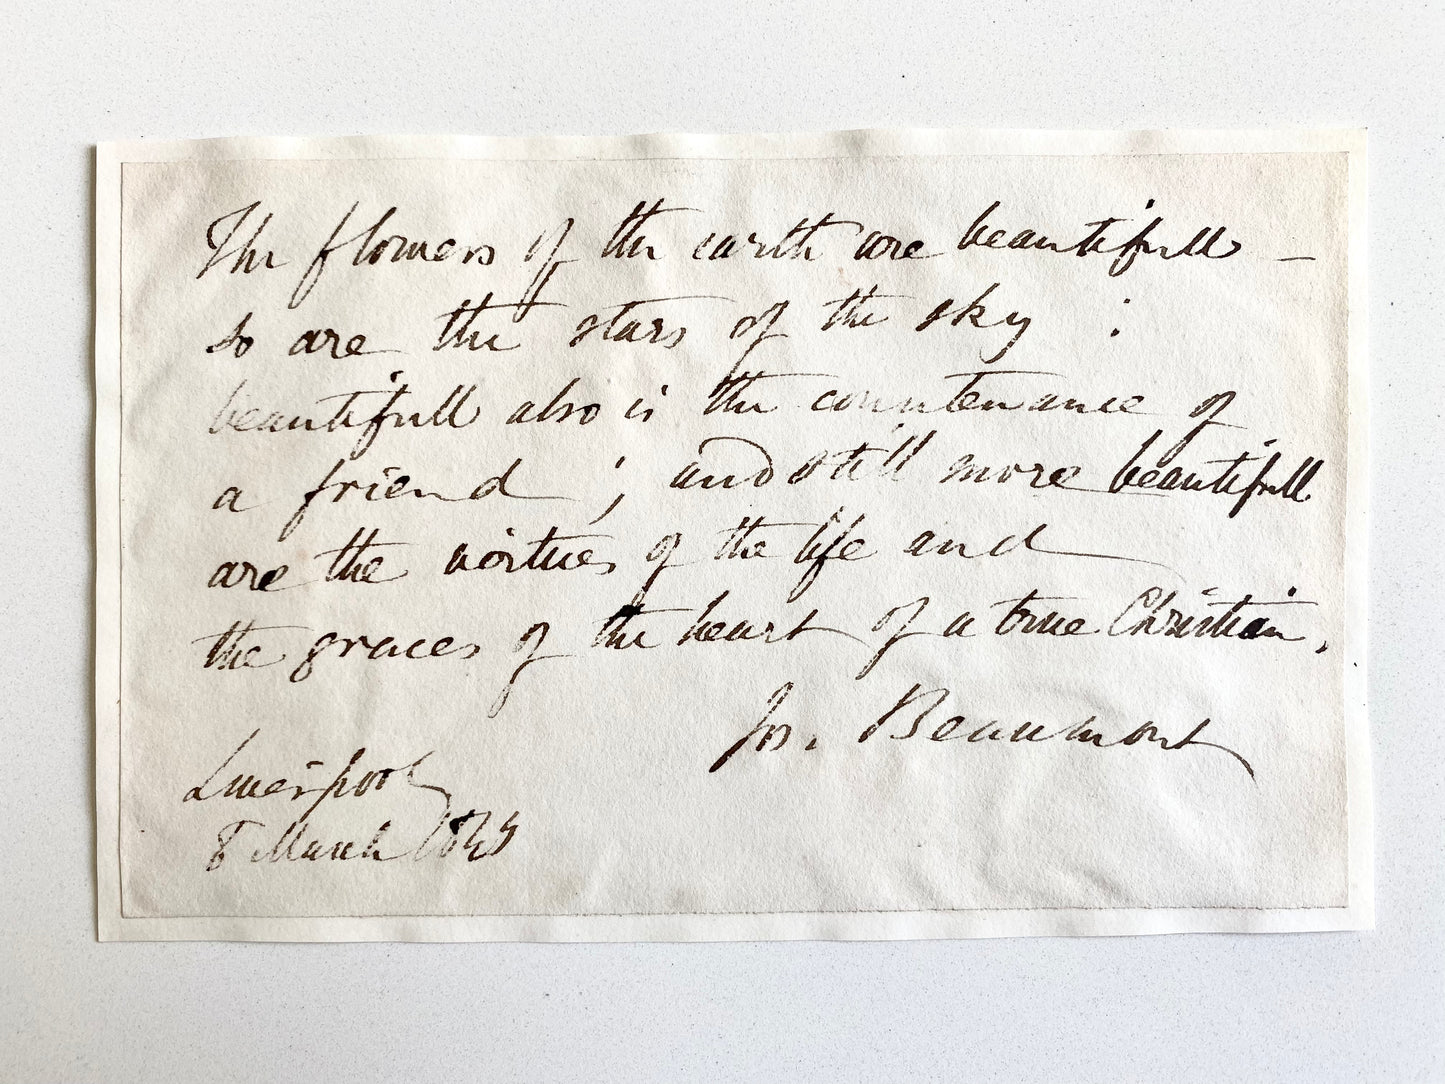 The flowers of the earth are beautifull –
so are the stars of the sky :
beautifull also is the countenance of
a friend ; and still more beautifull
are the virtues of the life and
the graces of the heart of a true Christian.
Jos. Beaumont
Liverpool
8 March